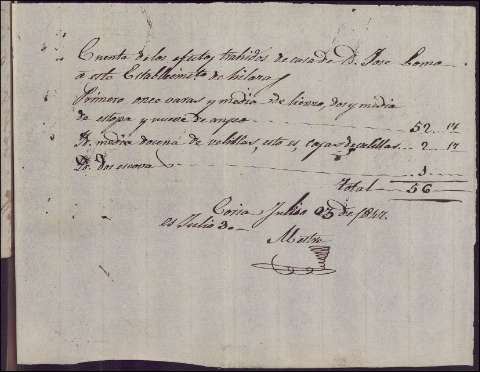 Cuenta de los efectos trahidos de casa de D. Jose Romo
a este Establecimto. de hilazas
Primero once varas y media de lienzo, dos y media
de estopa y nueve de angeo 52.. 17
Yd. media docena de velillas, esto es, cajas de velillas.. 2.. 17
Yd. dos escova 1..
Total 56
Coria Julio 03 de 1847.
es Julio 30
Mestre